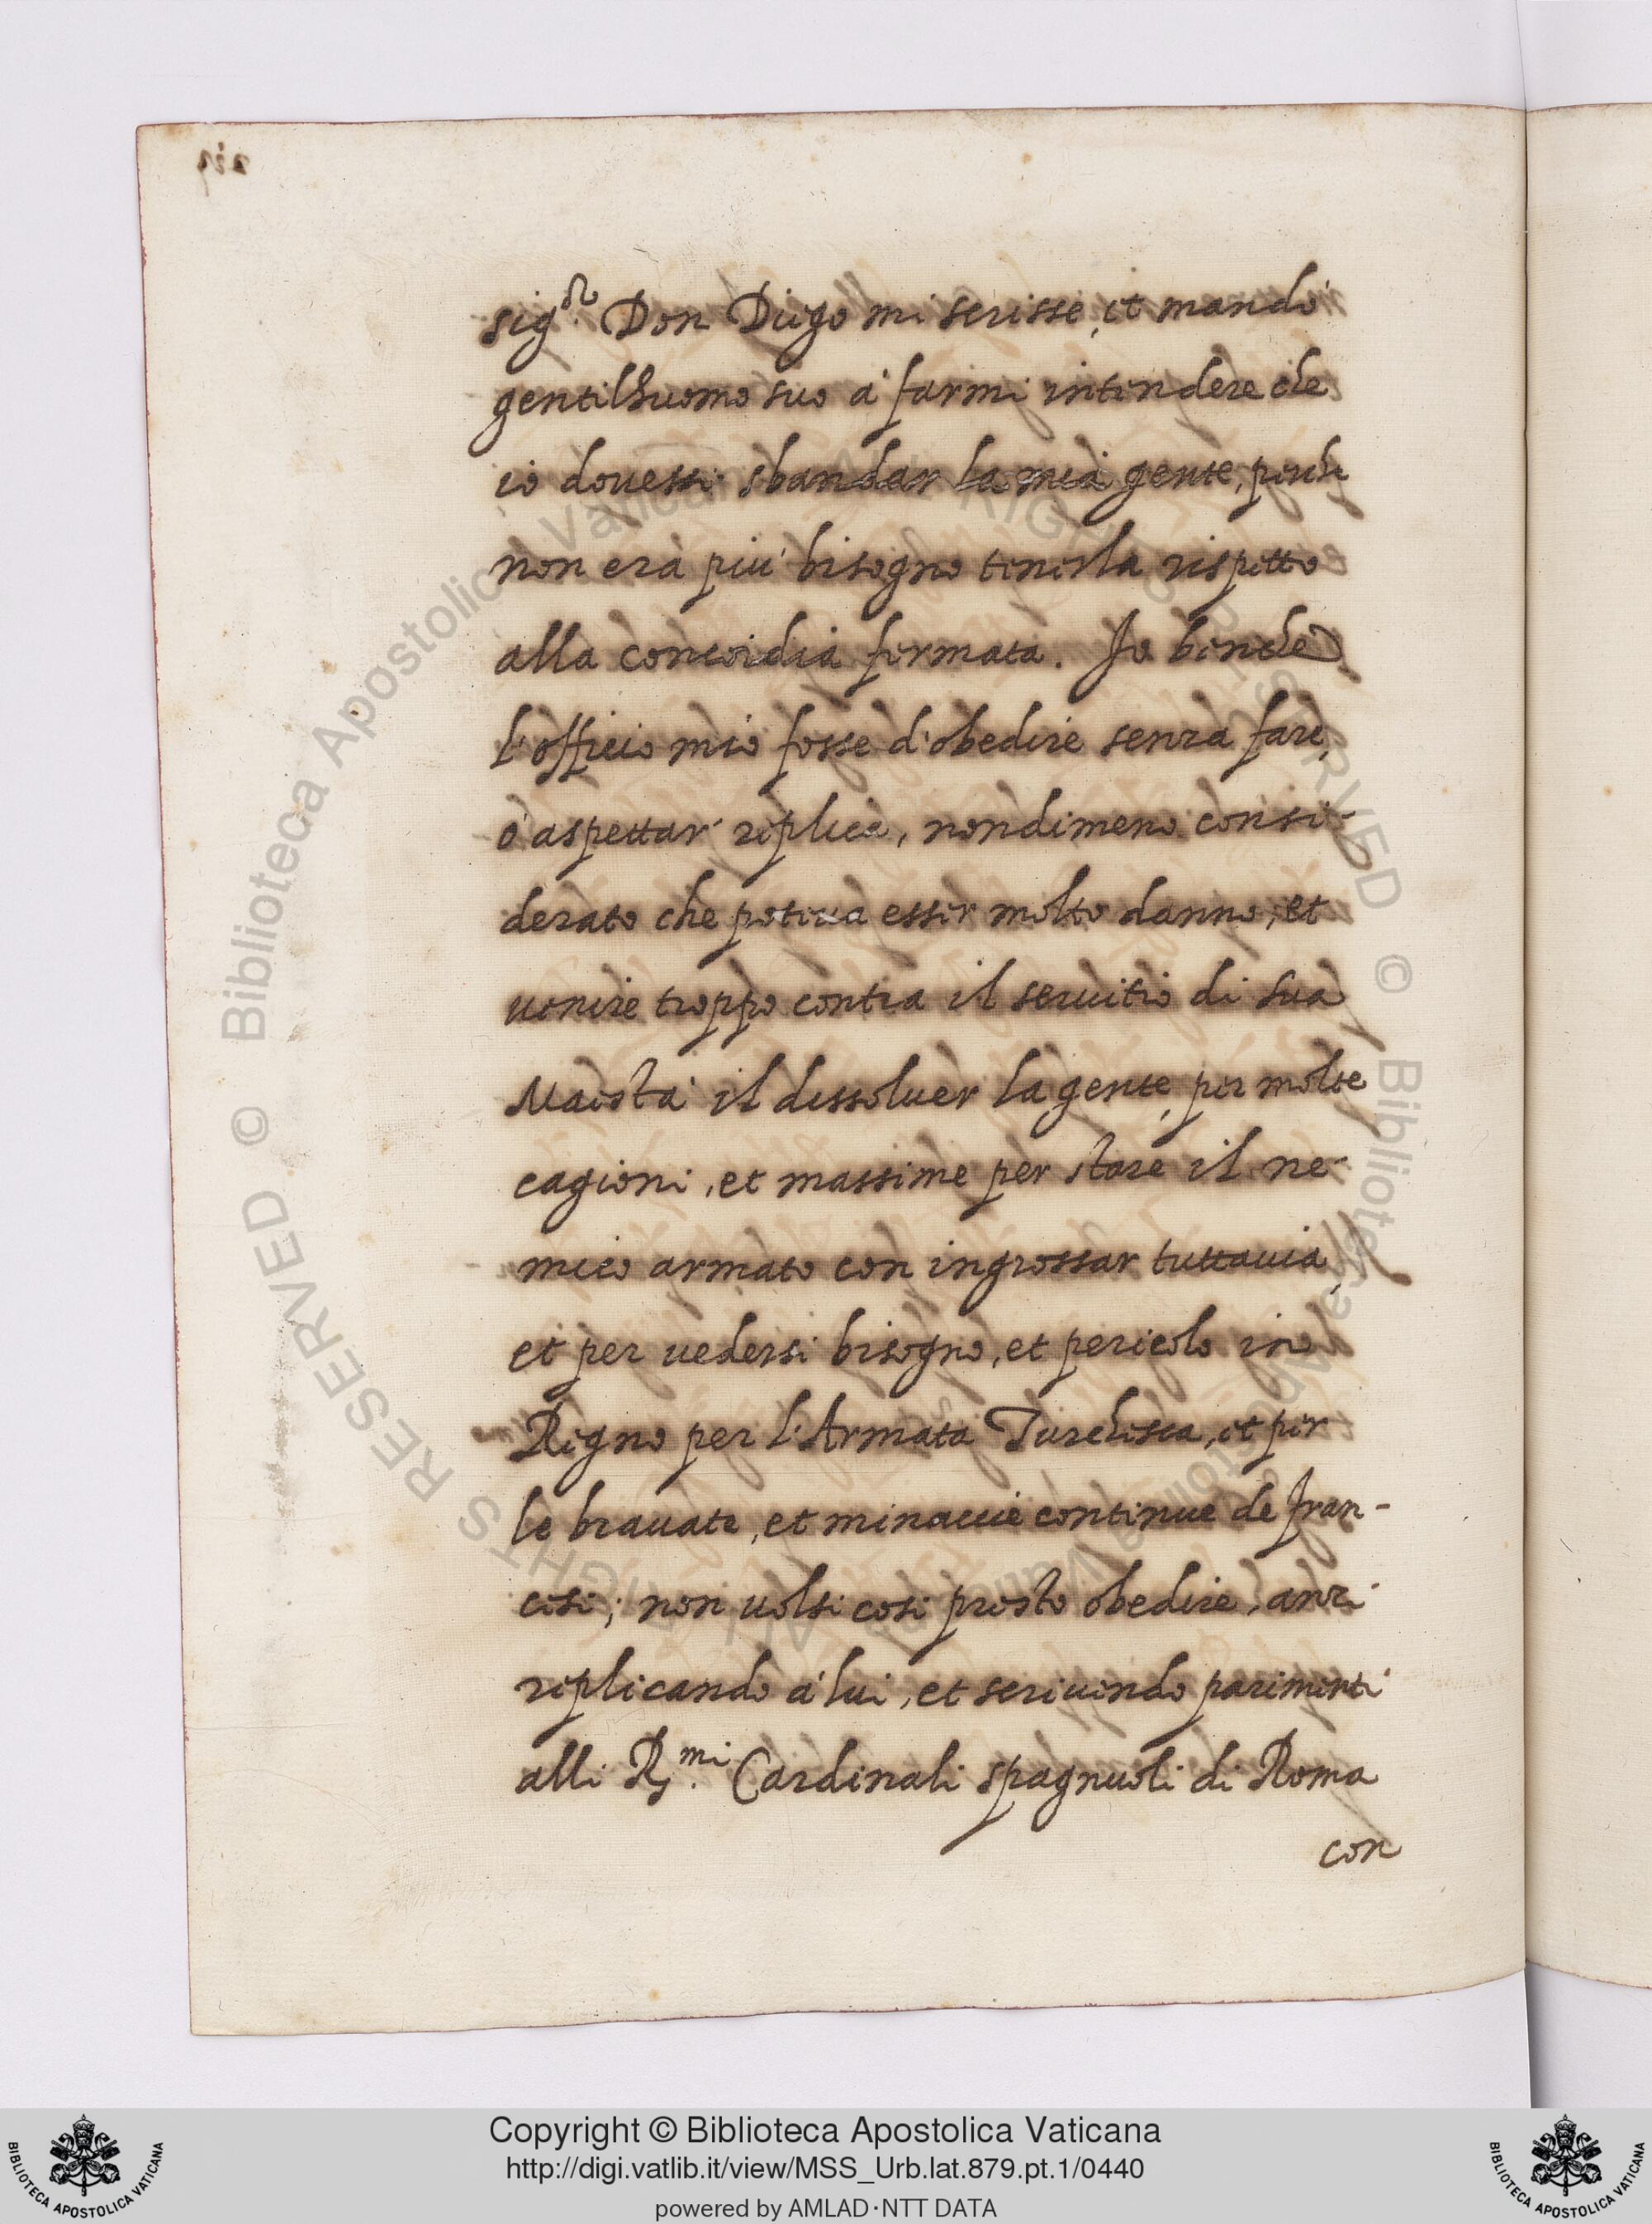 sig.r Don Diego mi scrisse, et mandò
gentilhuomo suo à farmi intendere che
io douessi sbandar la mia gente, perche
non era più bisogno tenerla rispetto
alla concordia fermata. Jo benche
l'officio mio fosse d'obedire senza fare,
ò aspettar replica, nondimeno consi-
derato che poteua esser molto danno, et
uenire troppo contra il seruitio di sua
Maestà il dissoluer la gente, per molte
cagioni, et massime per stare il ne-
mico armato con ingrossar tuttauia,
et per uedersi bisogno, et pericolo in
Regno per l'Armata Turchesca, et per
le brauate, et minaccie continue de fran-
cesi; non uolsi cosi presto obedire, anzi
replicando à lui, et scriuendo parimenti
alli R.mi Cardinali spagnuoli di Roma
con
© Biblioteca Apostolica Vaticana ALL RIGHTS RESERVED © Biblioteca Apostolica Vaticana ALL RIGHTS RESERVED
Copyright © Biblioteca Apostolica Vaticana
http://digi.vatlib.it/view/MSS_Urb.lat.879.pt.1/0440
powered by AMLAD·NTT DATA
BIBLIOTECA APOSTOLICA VATICANA
BIBLIOTECA APOSTOLICA VATICANA